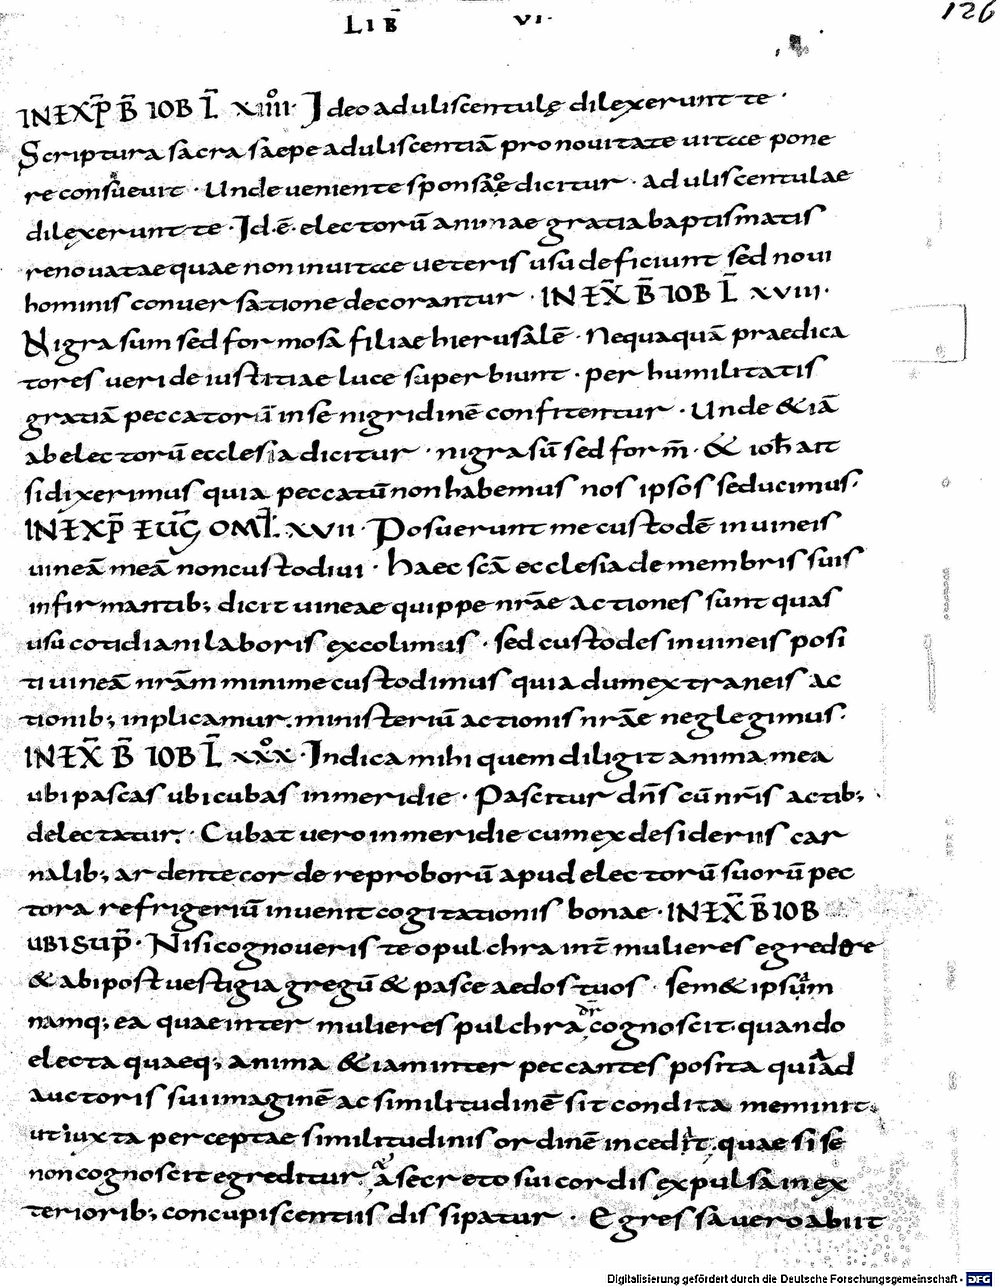 LIB̄ VI·
126
INEXP̄ B̄ IOB L̄ XIIII· Ideo aduliscentulę dilexerunt te ·
Scriptura sacra saepe aduliscentiā pro nouitate uitae pone
re consueuit · Unde ueniente sponso dicitur · aduliscentulae
dilexerunt te · Id·ē· electorū animae gratia baptismatis
renouatae quae non in uitae ueteris usu deficiunt sed noui
hominis conuersatione decorantur · IN EX̄ B̄ IOB L̄ XVIII·
Nigra sum sed formosa filiae hierusalē · Nequaquā praedica
tores ueri de iustitiae luce superbiunt · per humilitatis
gratiā peccatorū in se nigridinē confitentur · Unde & iā
ab electorū ecclesia dicitur · nigra sū sed form̄ · & ioħ ait
si dixerimus quia peccatū non habemus nos ipsos seducimus·
INEXP̄ EUḠ OML̄ XVII · Posuerunt me custodē in uineis
uineā meā non custodiui · Haec sc̄a ecclesia de membris suis
infirmantib; dicit uineae quippe nrāe actiones sunt quas
usu cotidiani laboris excolimus · sed custodes in uineis posi
ti uineā nrām minime custodimus quia dum extraneis ac
tionib; inplicamur. ministeriū actionis nrāe neglegimus·
IN EX̄ B̄ IOB L̄ XXX · Indica mihi quem diligit anima mea
ubi pascas ubi cubas in meridie · Pascitur dn̄s cū nr̄is actib;
delectatur. · Cubat uero in meridie cum ex desideriis car
nalib; ardente corde reproborū apud electorū suorū pec
tora refrigeriū inuenit cogitationis bonae · IN EX̄ B̄ IOB
UBI SUP̄ · Nisi cognoueris te o pulchra int̄ mulieres egredere
& abi post uestigia gregū & pasce aedos tuos · sem& ipsam
namq; ea quae inter mulieres pulchra dr̄ cognoscit quando
electa quaeq; anima & iam inter peccantes posita quia ad
auctoris sui imaginē ac similitudinē sit condita meminit.
ut iuxta perceptae similitudinis ordinē incedit. quae si se
non cognoscit egreditur quia a secreto sui cordis expulsa in ex
teriorib; concupiscentiis dissipatur · Egressa uero abiit
Digitalisierung gefördert durch die Deutsche Forschungsgemeinschaft - DFG